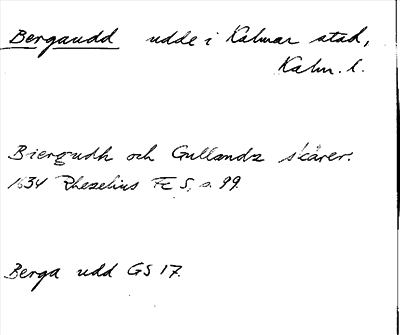 Bergaudd udde i Kalmar stad,
Kalm. l.
Biergudh och Gullandz skärer.
1634 Rhezelius FE 5, s. 99.
Berga udd GS 17.